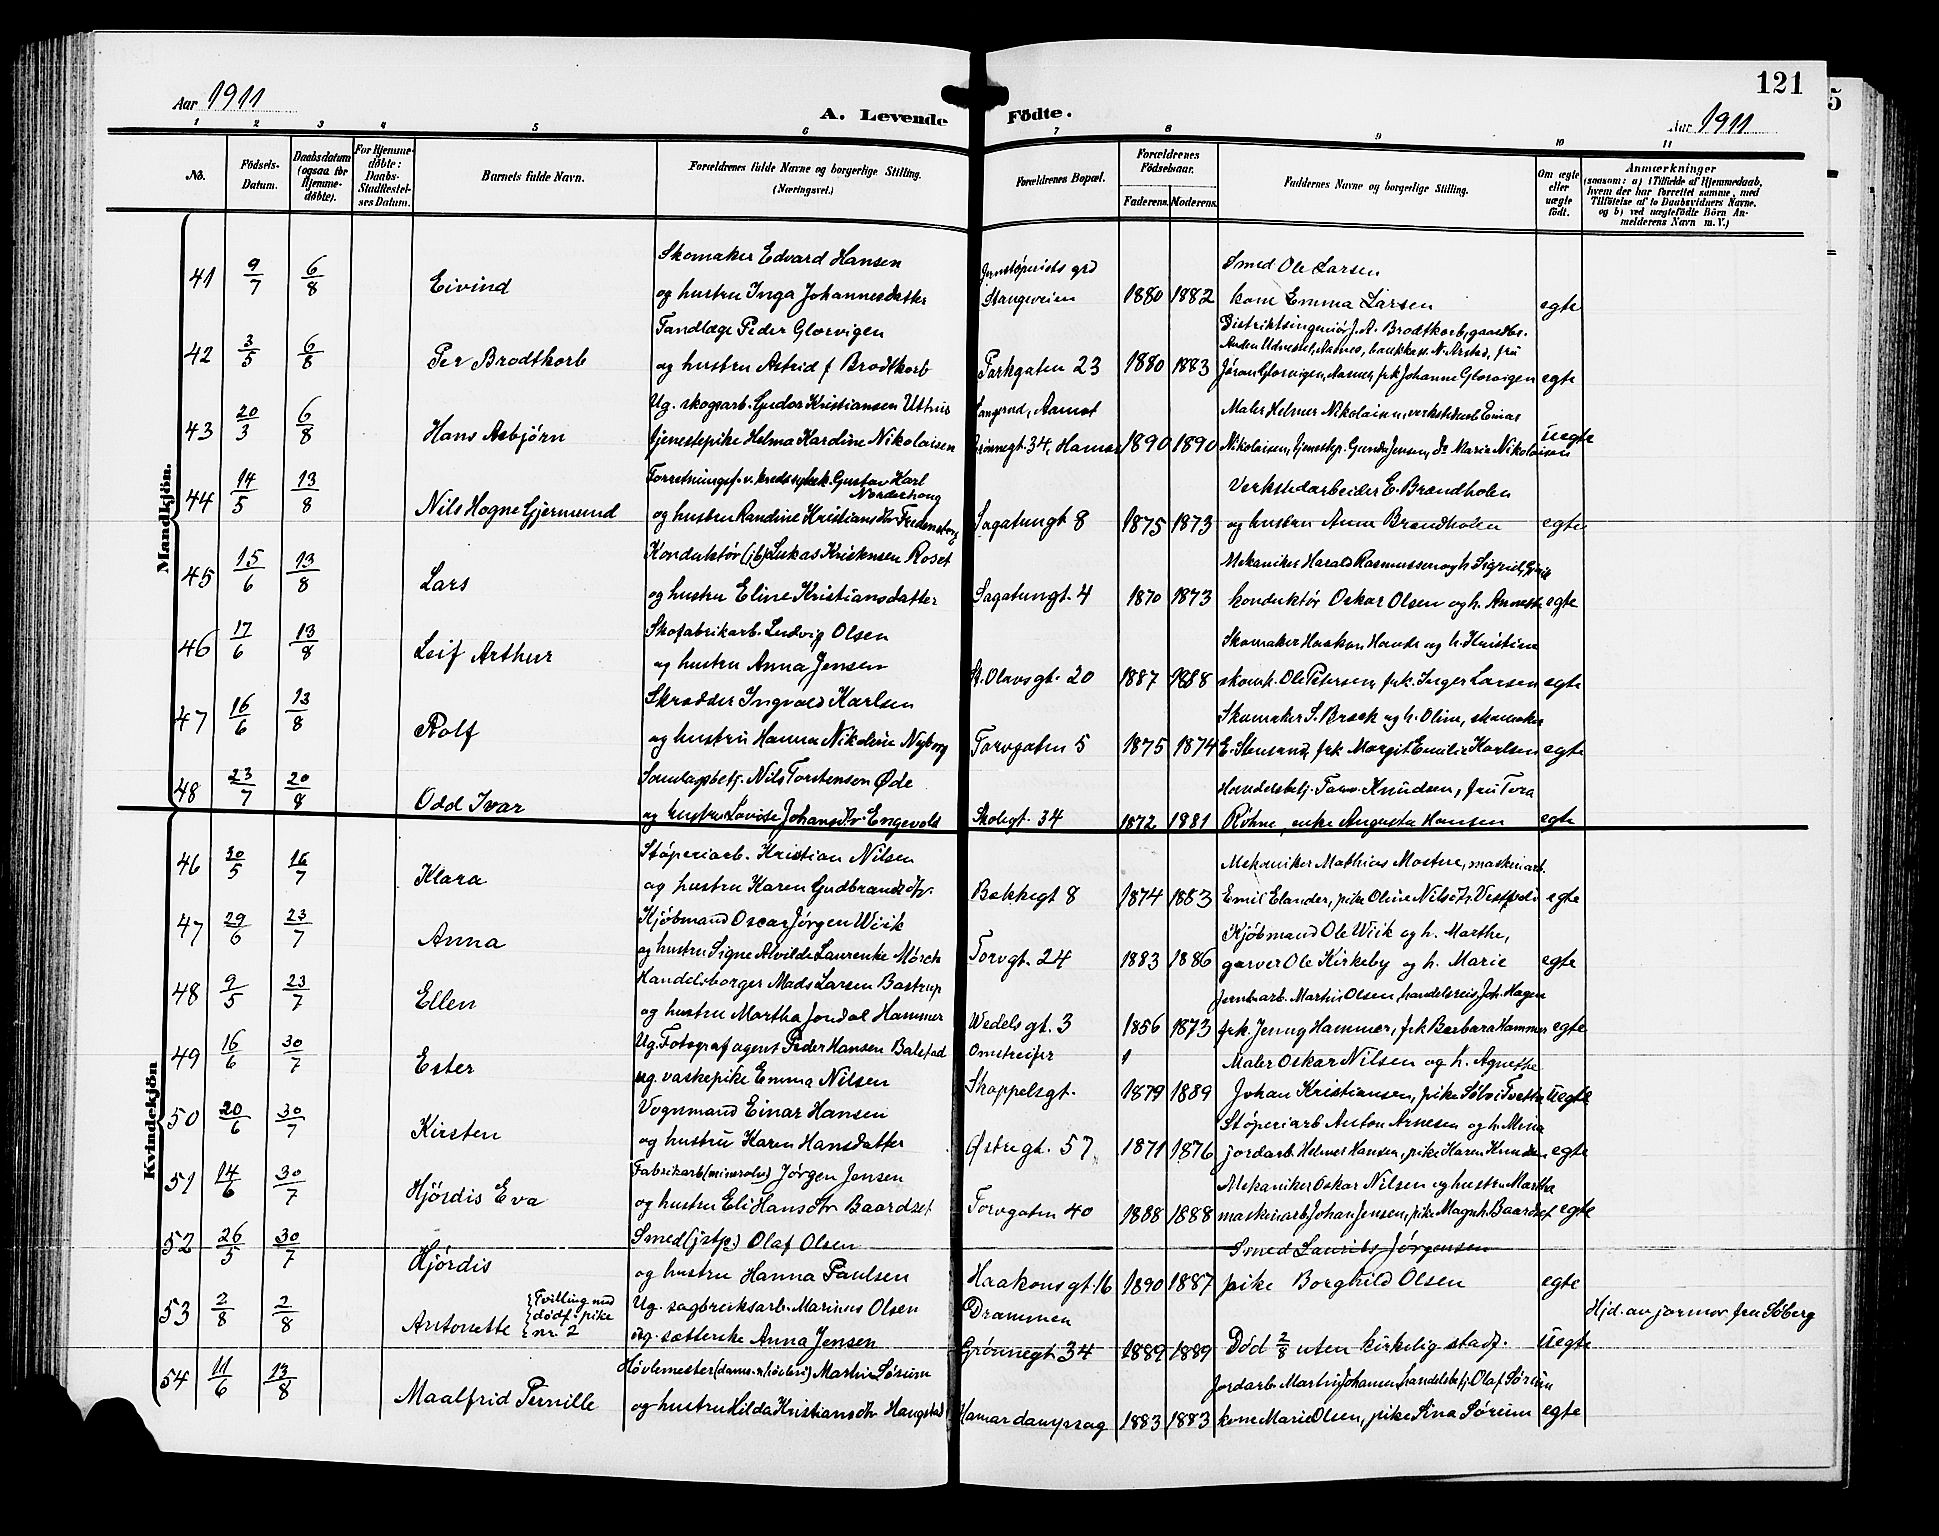 121
5
Aar 1911
A. Levende Födte.
Aar 1911
1 2 3 4 5 6 7 8 9 10 11
No.
Födsels-Datum.
Daabsdatum (ogsaa for Hjemme-döbte).
For Hjemme-döbte: Daabs-Stadfæstel-ses Datum.
Barnets fulde Navn.
Forældrenes fulde Navne og borgerlige Stilling. (Næringsvei.)
Forældrenes Bopæl.
Forældrenes Födselsaar.
Faderens. Moderens.
Faddernes Navne og borgerlige Stilling.
Om ægte eller uægte födt.
Anmærkninger
(saasom: a) i Tilfælde af Hjemmedaab, hvem der har forrettet samme, med Tilföielse af to Daabsvidners Navne. og b) ved uægtefödte Börn Anmelderens Navn m. V.)
Mandkjön.
Skomaker Edvard Hansen
Jernstöperiets grd
Smed Ole Larsen
41 9/7 6/8 Eivind og hustru Inga Johannesdatter Stangeveien 1880 1882 kone Emma Larsen egte
Tandlæge Peder Glorvigen
Distriktsingeniör J. A. Brodtkorb, gaardbr.
42 3/5 6/8 Per Brodtkorb og hustru Astrid f Brodtkorb Parkgaten 23 1880 1883 Glorvigen, frk Johanne Glorvigen egte
Ug. skogsarb. Gudor Kristiansen Uthus
Aamot
Maler Helmer Nikolaisen, verkstedarb Einar
43 20/3 6/8 Hans Asbjörn tjenestepike Helma Kardine Nikolaisen Grönnegt. 34, Hamar 1890 1890 Nikolaisen, tjenestep. Gunda Jensen, do Marie Nikolaisen uegte
Forretningsf. v. kredssykek. Gustav Karl Norderhaug
Verkstedarbeider E. Brendholen
44 14/5 13/8 Nils Hogne Gjermund og hustru Randine Kristiansdtr Fredensborg Sagatungt 8 1875 1873 og hustru Anna Brendholen egte
Konduktör (jb) Lukas Kristensen Roset
Mekaniker Harald Rasmussen og h. Sigrid,
45 15/6 13/8 Lars og hustru Eline Kristiansdatter Sagatungt. 4 1870 1873 konduktör Oskar Olsen og h. Annette egte
Skofabrikarb. Ludvig Olsen
Skomaker Haakon Hande og h. Kristine
46 17/6 13/8 Leif Arthur og hustru Anna Jensen St. Olavsgt. 20 1887 1888 skom. Ole Petersen, frk. Inger Larsen egte
Skrædder Ingvald Karlsen
Skomaker S. Bræk og h. Oline, skomaker
47 16/6 13/8 Rolf og hustru Hanna Nikoline Nyborg Torvgaten 5 1875 1874 E. Stensrud, frk Margit Emilie Karlsen egte
Samlagsbetj. Nils Torstensen Øde
Handelsbetj. Tarv. Knudsen, fru Tora
48 23/7 20/8 Odd Ivar og hustru Lovise Johansdtr. Engevold Skolegt. 34 1872 1881 Röhne, enke Augusta Hansen egte
Kvindekjön
Stöperiarb. Kristian Nilsen
Mekaniker Mathias Mostue, maskinarb.
46 30/5 16/7 Klara og hustru Karen Gudbrandsdtr. Bekkegt 8 1874 1883 Emil Elander, pike Oline Nilsdtr. Vestfold egte
Kjöbmand Oscar Jörgen Wiik
Kjöbmand Ole Wiik og h. Marthe,
47 29/6 23/7 Anna og hustru Signe Alvilde Laurenke Mörch Torvgt. 24 1883 1886 garver Ole Kirkeby og h. Marie egte
Handelsborger Mads Larsen Bastrup
Jernb.arb. Martin Olsen, handelsreis Joh. Hagen
48 9/5 23/7 Ellen og hustru Martha Jondal Hammer Wedels gt. 3 1856 1873 frk. Jenny Hammer, frk Barbara Hammer egte
Ug. Fotografagent Peder Hansen Balstad
Omstreifer
Maler Oskar Nilsen og h. Agnethe
49 16/6 30/7 Ester ug. vaskepike Emma Nilsen Skappelsgt. 1879 1889 Johan Kristiansen, pike Sölvi Tvetta uegte
Vognmand Einar Hansen
Stöperiarb Anton Arnesen og h. Mina
50 20/6 30/7 Kirsten og hustru Karen Hansdatter Østregt. 57 1871 1876 jordarb. Helmer Hansen, pike Karen Knudsen egte
Fabrikarb (mineralv.) Jörgen Jensen
Mekaniker Oskar Nilsen og hustru Martha
51 14/6 30/7 Hjördis Eva og hustru Eli Hansdtr Baardset Torvgaten 40 1888 1888 maskinarb Johan Jensen, pike Magnh. Baardset egte
Smed (jstp.) Olaf Olsen
Smed Laurits Jörgensen
52 26/5 30/7 Hjördis og hustru Hanna Paulsen Haakonsgt. 16 1890 1887 pike Borghild Olsen egte
Tvilling med dödf. pike nr. 2
Ug. sagbruksarb. Marinus Olsen
Drammen
Hjd. av jormor fru Söberg
53 2/8 2/8 Antonette ug. sætterske Anna Jensen Grönnegt 34 1889 1889 Död 2/8 uten kirkelig stadf. uegte
Hövlemester (damsn. hövleri) Martin Sörum
Jordarb. Martin Johansen, handelsbetj. Olaf Sörum
54 11/6 13/8 Maalfrid Pernille og hustru Hilda Kristiansdtr Haugstad Hamar dampsag 1883 1883 kone Marie Olsen, pike Sina Sörum egte